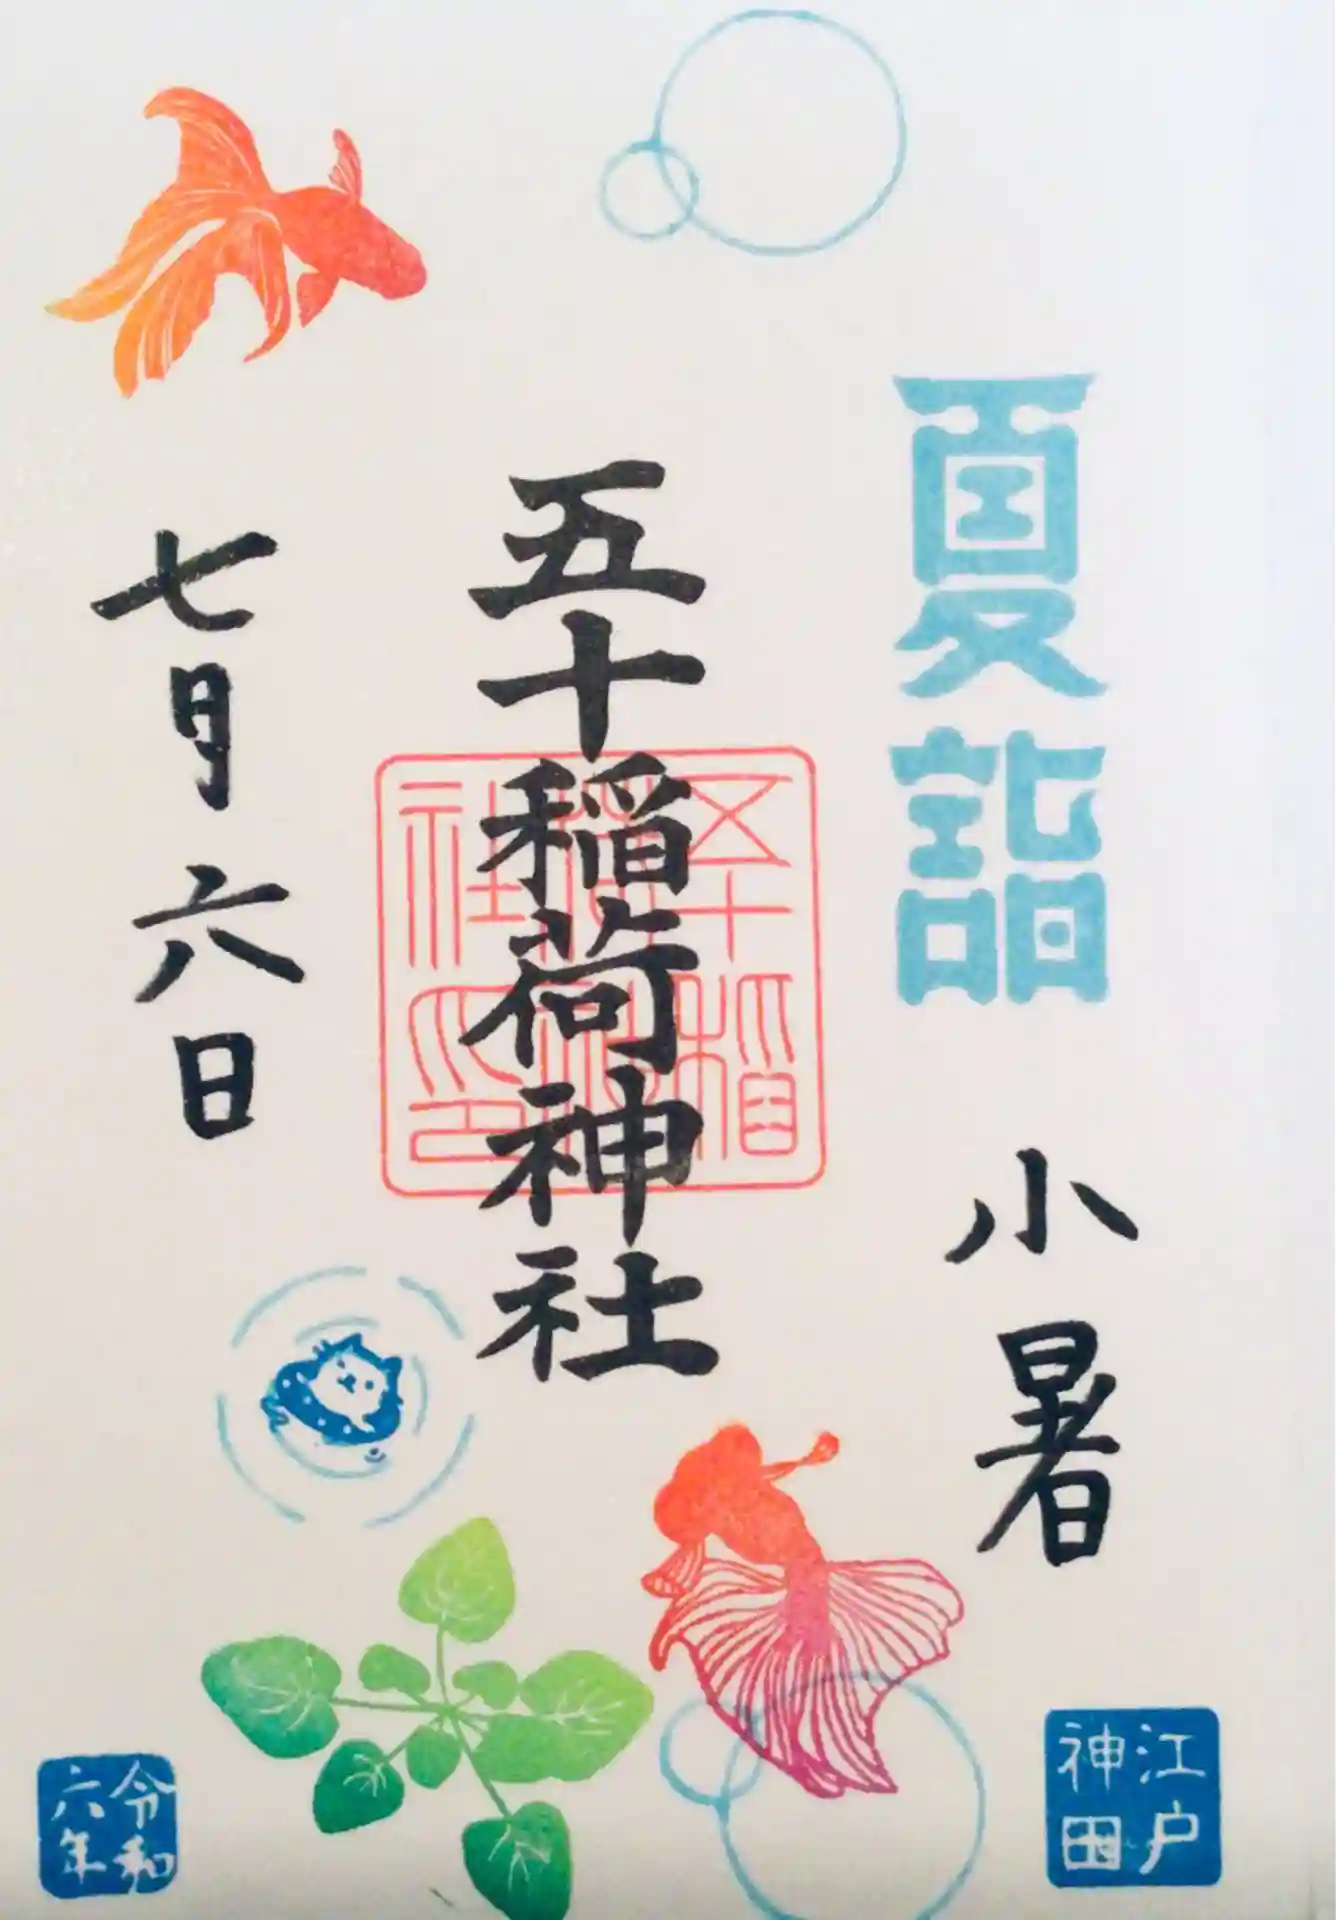 夏詣
小暑
五十稲荷神社
五十稲荷神社印
七月六日
江戸
神田
令和
六年